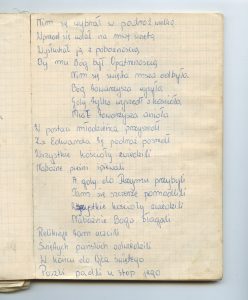 Nim się wybrał w podróż wielką
Wprzód się udał na mszę świętą
Wysłuchał ją z pobożnością
By mu Bóg był Opatrznością
Nim się święta msza odbyła
Bóg towarzysza zsyła
Gdy tylko wyszedł z kościoła
Miał towarzysza anioła
W postaci młodzieńca przyszedł
Za Edwardem się podróż poszedł
Wszystkie kościoły zwiedzili
Nabożne pieśni śpiewali
A gdy do Rzymu przybyli
Tam się szczerze pomodlili
Wszystkie kościoły zwiedzili
Nabożnie Boga błagali
Relikwie tam uczcili
Świętych pańskich odwiedzili
W końcu do Ojca Świętego
Poszli padli u stóp jego